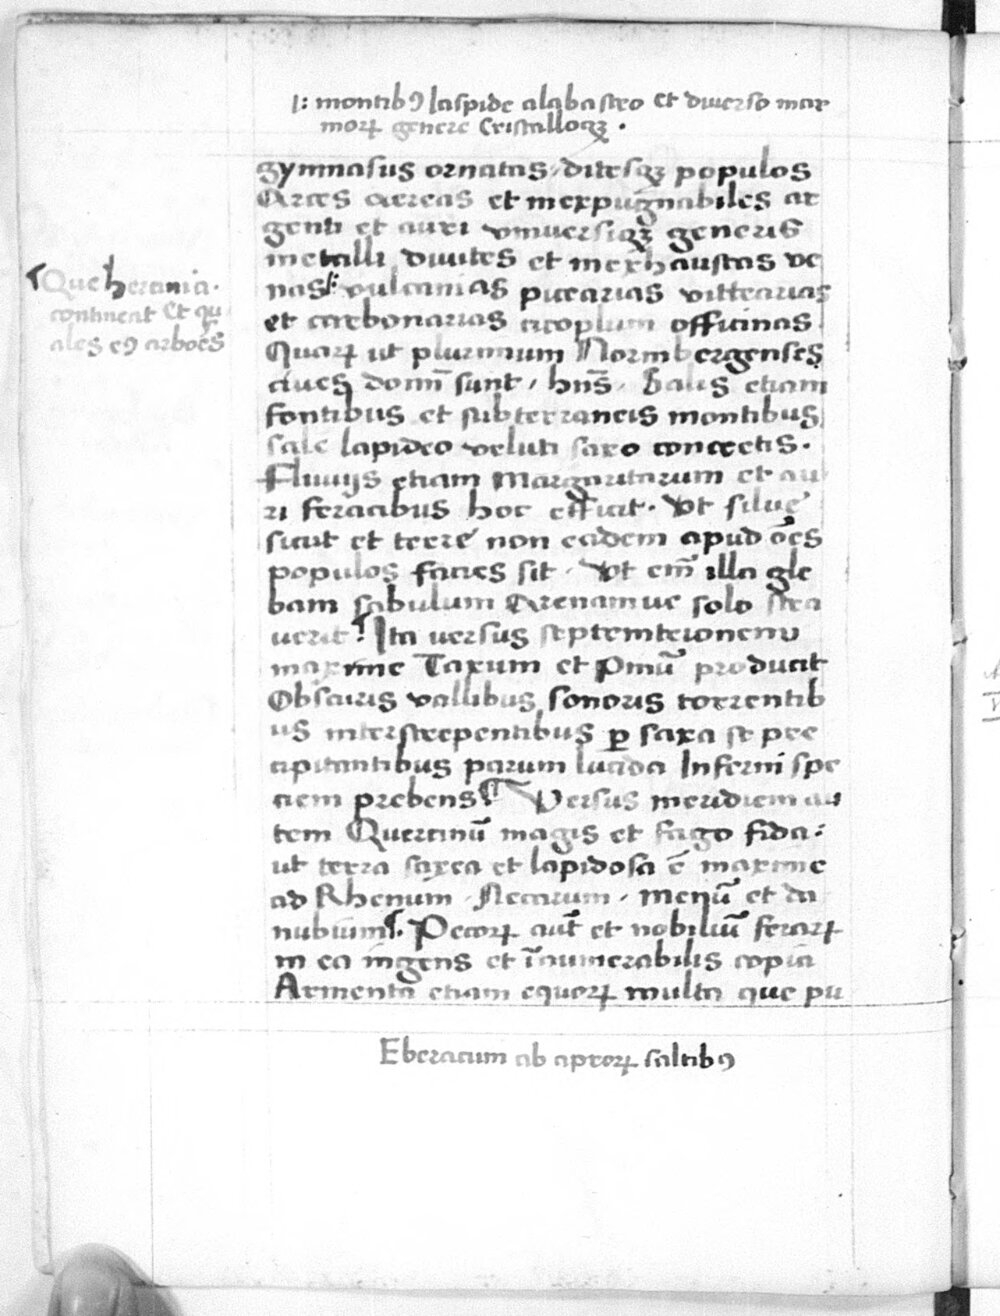 I: montibꝰ Iaspide alabastro et diuerso mar
morꝝ genere Cristalloqꝫ .
gymnasijs ornatas, ditesqꝫ populos
Arces aereas et inexpugnabiles ar
genti et auri vniuersiqꝫ generis
metalli diuites et inexhaustas ve
nas: vulcanias picearias vittearias
et carbonarias circoplurium officinas.
Quarꝝ ut plurimum Normbergenses
ciues domī sunt, hn̄s. Salis etiam
fontibus et subterraneis montibus
sale lapideo veluti saxo concretis.
Fluuijs etiam Margaritarum et au
ri feracibus hoc efficit. Vt silue
sicut et terre non eadem apud oēs
populos facies sit. Vt em̄ illa gle
bam sabulum Arenamue solo stra
uerit: Ita uersus septemtrionem
maxime Taxum et Pinū producit
Obscuris vallibus sonoris torrentib
us interstrepentibus ꝑ saxa se pre
cipitantibus parum lucida Inferni spe
ciem prebens. Versus meridiem au
tem Quercinū magis et fago fida:
ut terra saxea et lapidosa ē maxime
ad Rhenum, Necarum, Menū et da
nubium. Pecorꝝ aut̄ et nobiliū ferarꝝ
in ea ingens et īnumerabilis copia
Armenta etiam equorꝝ multa que pu
Que hercinia.
contineat Et qu
ales eꝰ arbores
Eberacum ab aprorꝝ saltibꝰ